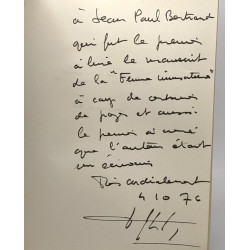 à Jean Paul Bertrand
qui fut le premier
à lire le manuscrit
de la "Femme
à
de pages et aussi
le premier à
que l'auteur était
un écrivain
Très cordialement
4 10 76